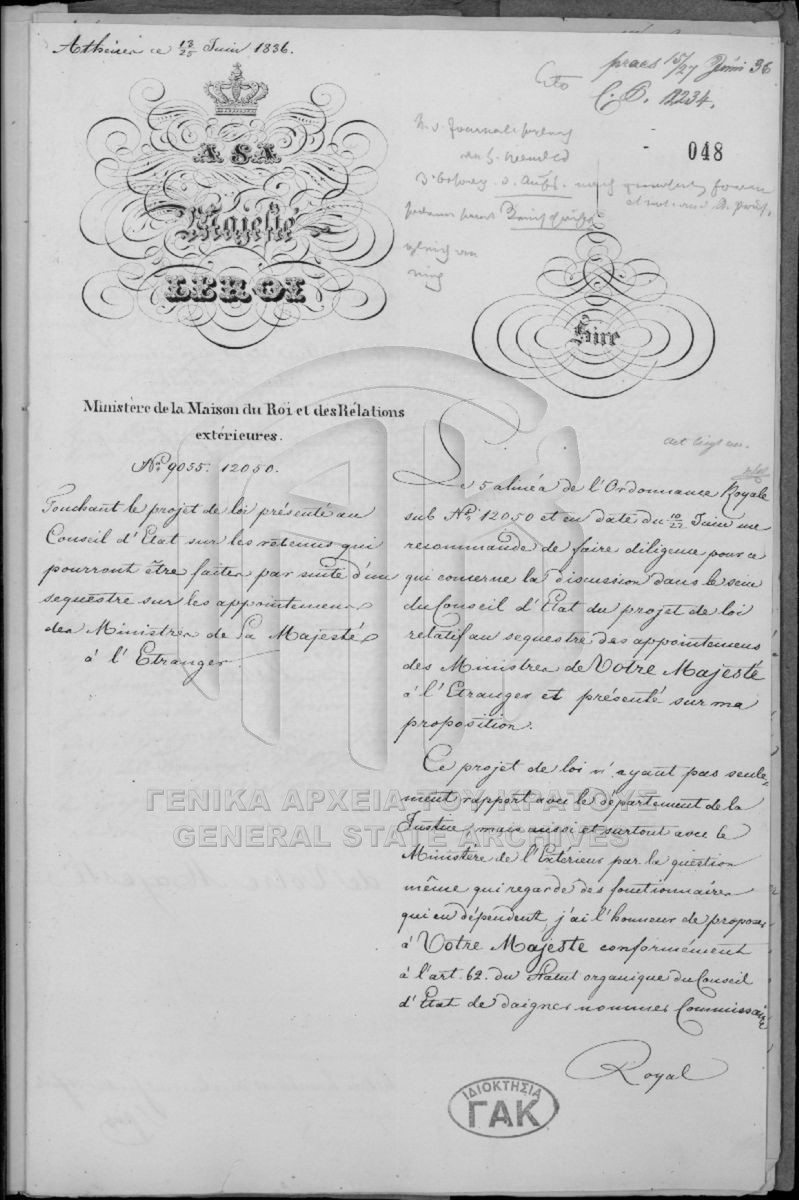 Athènes ce 13/25 Juin 1836.
praes 15/27 Juni 36
Cito
C. D. 12234.
048
A SA
Majesté
LE ROI
Sire
Ministère de la Maison du Roi et des Rélations
extérieures.
No. 9055. 12050.
Touchant le projet de loi présenté au
Conseil d'Etat sur les retenus qui
pourront être faites par suite d'un
sequestre sur les appointemens
des Ministres de Sa Majesté
à l'Etranger.
Le 5 alinéa de l'Ordonnance Royale
sub No. 12050 et en date du Juin me
recommande de faire diligence pour ce
qui concerne la discussion dans le sein
du Conseil d'Etat du projet de loi
relatif au sequestre des appointemens
des Ministres de Votre Majesté
à l'Etranger et présenté sur ma
proposition.
Ce projet de loi n'ayant pas seule-
ment rapport avec le département de la
Justice, mais aussi et surtout avec le
Ministère de l'Extérieur par la question
même qui regarde des fonctionnaires
qui en dépendent, j'ai l'honneur de proposer
à Votre Majesté conformément
à l'art. 62. du Statut organique du Conseil
d'Etat de daigner nommer Commissaire
Royal
ΓΕΝΙΚΑ ΑΡΧΕΙΑ ΤΟΥ ΚΡΑΤΟΥΣ
GENERAL STATE ARCHIVES
ΙΔΙΟΚΤΗΣΙΑ
ΓΑΚ